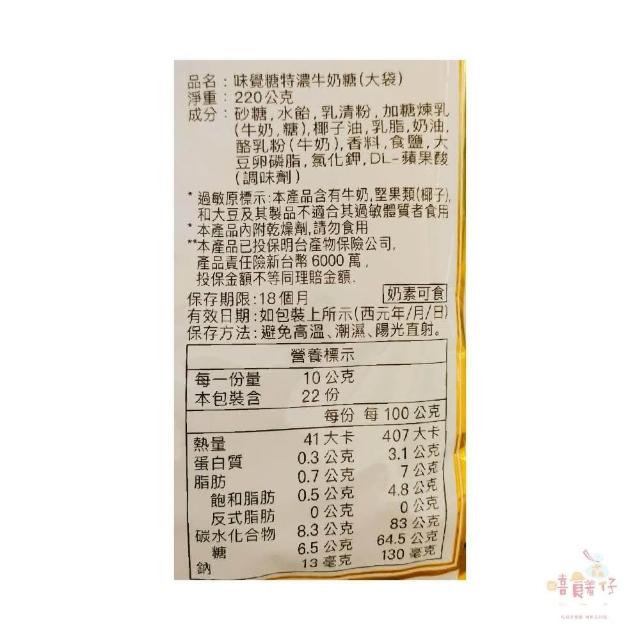 品名：味覺糖特濃牛奶糖(大袋)
淨重：220公克
成分：砂糖,水飴,乳清粉,加糖煉乳
(牛奶,糖),椰子油,乳脂,奶油,
酪乳粉(牛奶),香料,食鹽,大
豆卵磷脂,氯化鉀,DL-蘋果酸
(調味劑)
*過敏原標示:本產品含有牛奶,堅果類(椰子),
和大豆及其製品不適合其過敏體質者食用
*本產品內附乾燥劑,請勿食用
**本產品已投保明台產物保險公司,
產品責任險新台幣6000萬,
投保金額不等同理賠金額.
保存期限:18個月 奶素可食
有效日期:如包裝上所示(西元年/月/日)
保存方法:避免高溫、潮濕、陽光直射。
營養標示
每一份量 10公克
本包裝含 22份
每份 每100公克
熱量 41大卡 407大卡
蛋白質 0.3公克 3.1公克
脂肪 0.7公克 7公克
飽和脂肪 0.5公克 4.8公克
反式脂肪 0公克 0公克
碳水化合物 8.3公克 83公克
糖 6.5公克 64.5公克
鈉 13毫克 130毫克